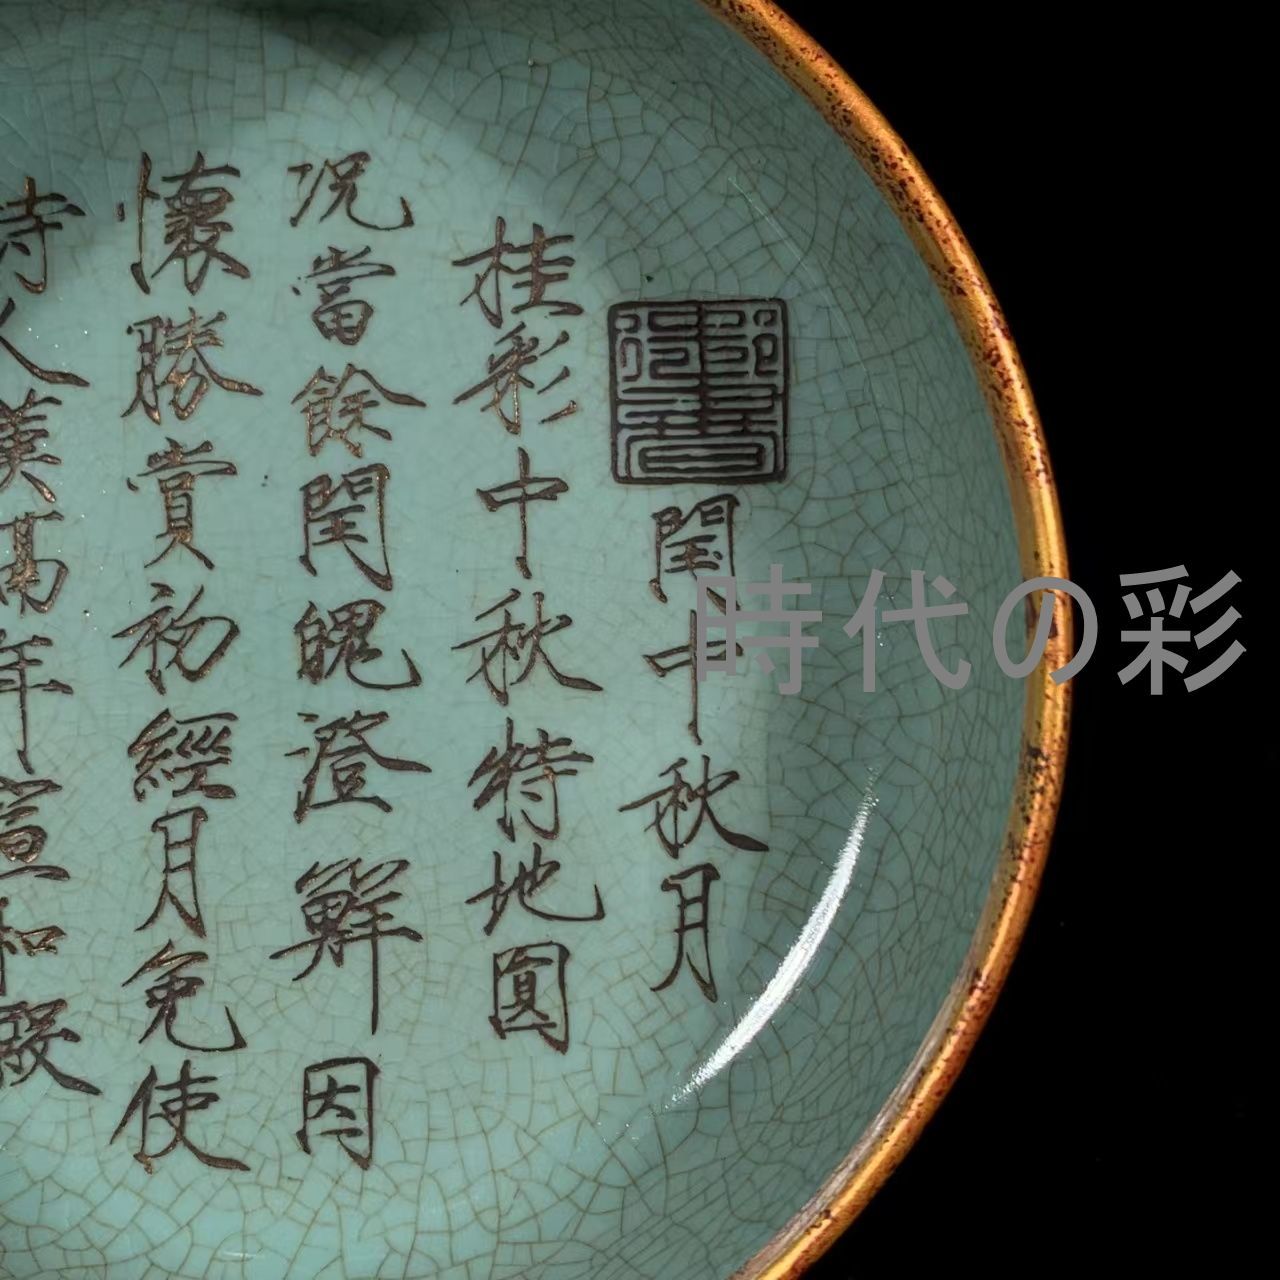 閏中秋月
桂彩中秋特地圓
况當餘閏魄澄鮮因
懷勝賞初經月免使
人年宣和殿
時代の彩